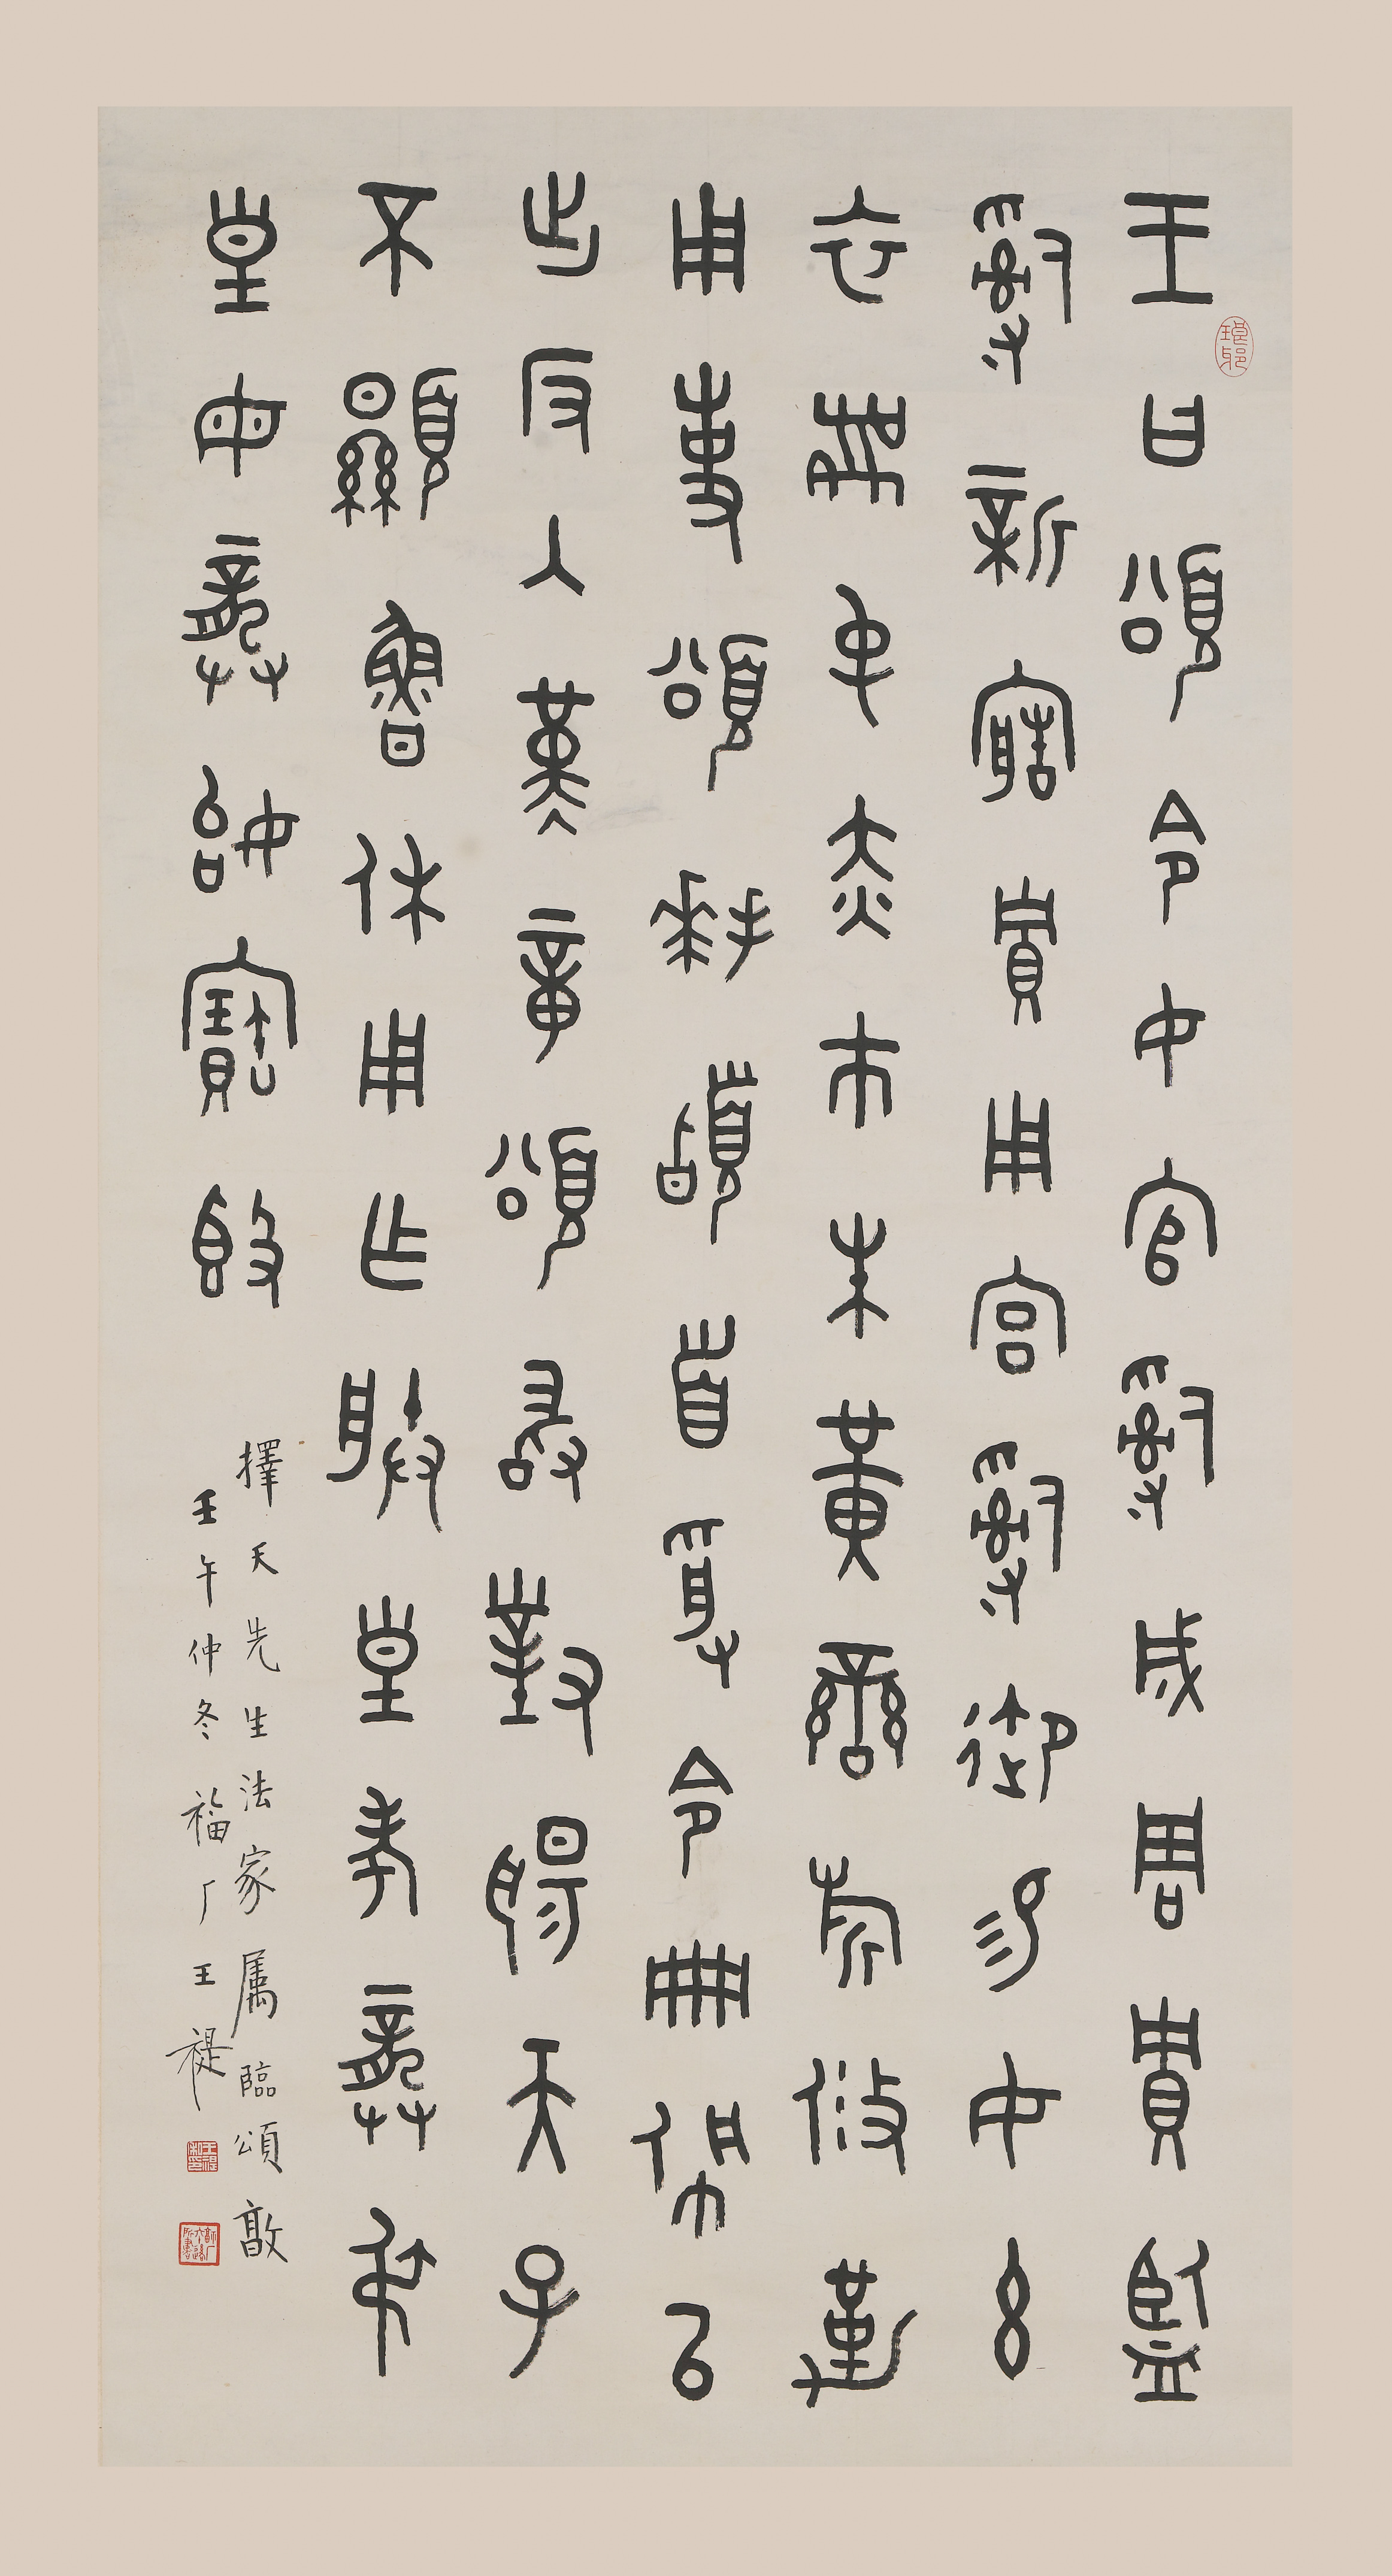 王曰頌令女官𤔲成周貯監
𤔲新寤貯用宮𤔲御易女玄
衣黹屯赤巿朱黃䜌旂攸勒
用事頌拜𩒨首受令冊佩㠯
出反入堇章頌敢對揚天子
不顯魯休用乍朕皇考龏弔
皇母龏始寶𣪘
擇天先生法家属臨頌敦
壬午仲冬福厂王禔
王禔私印